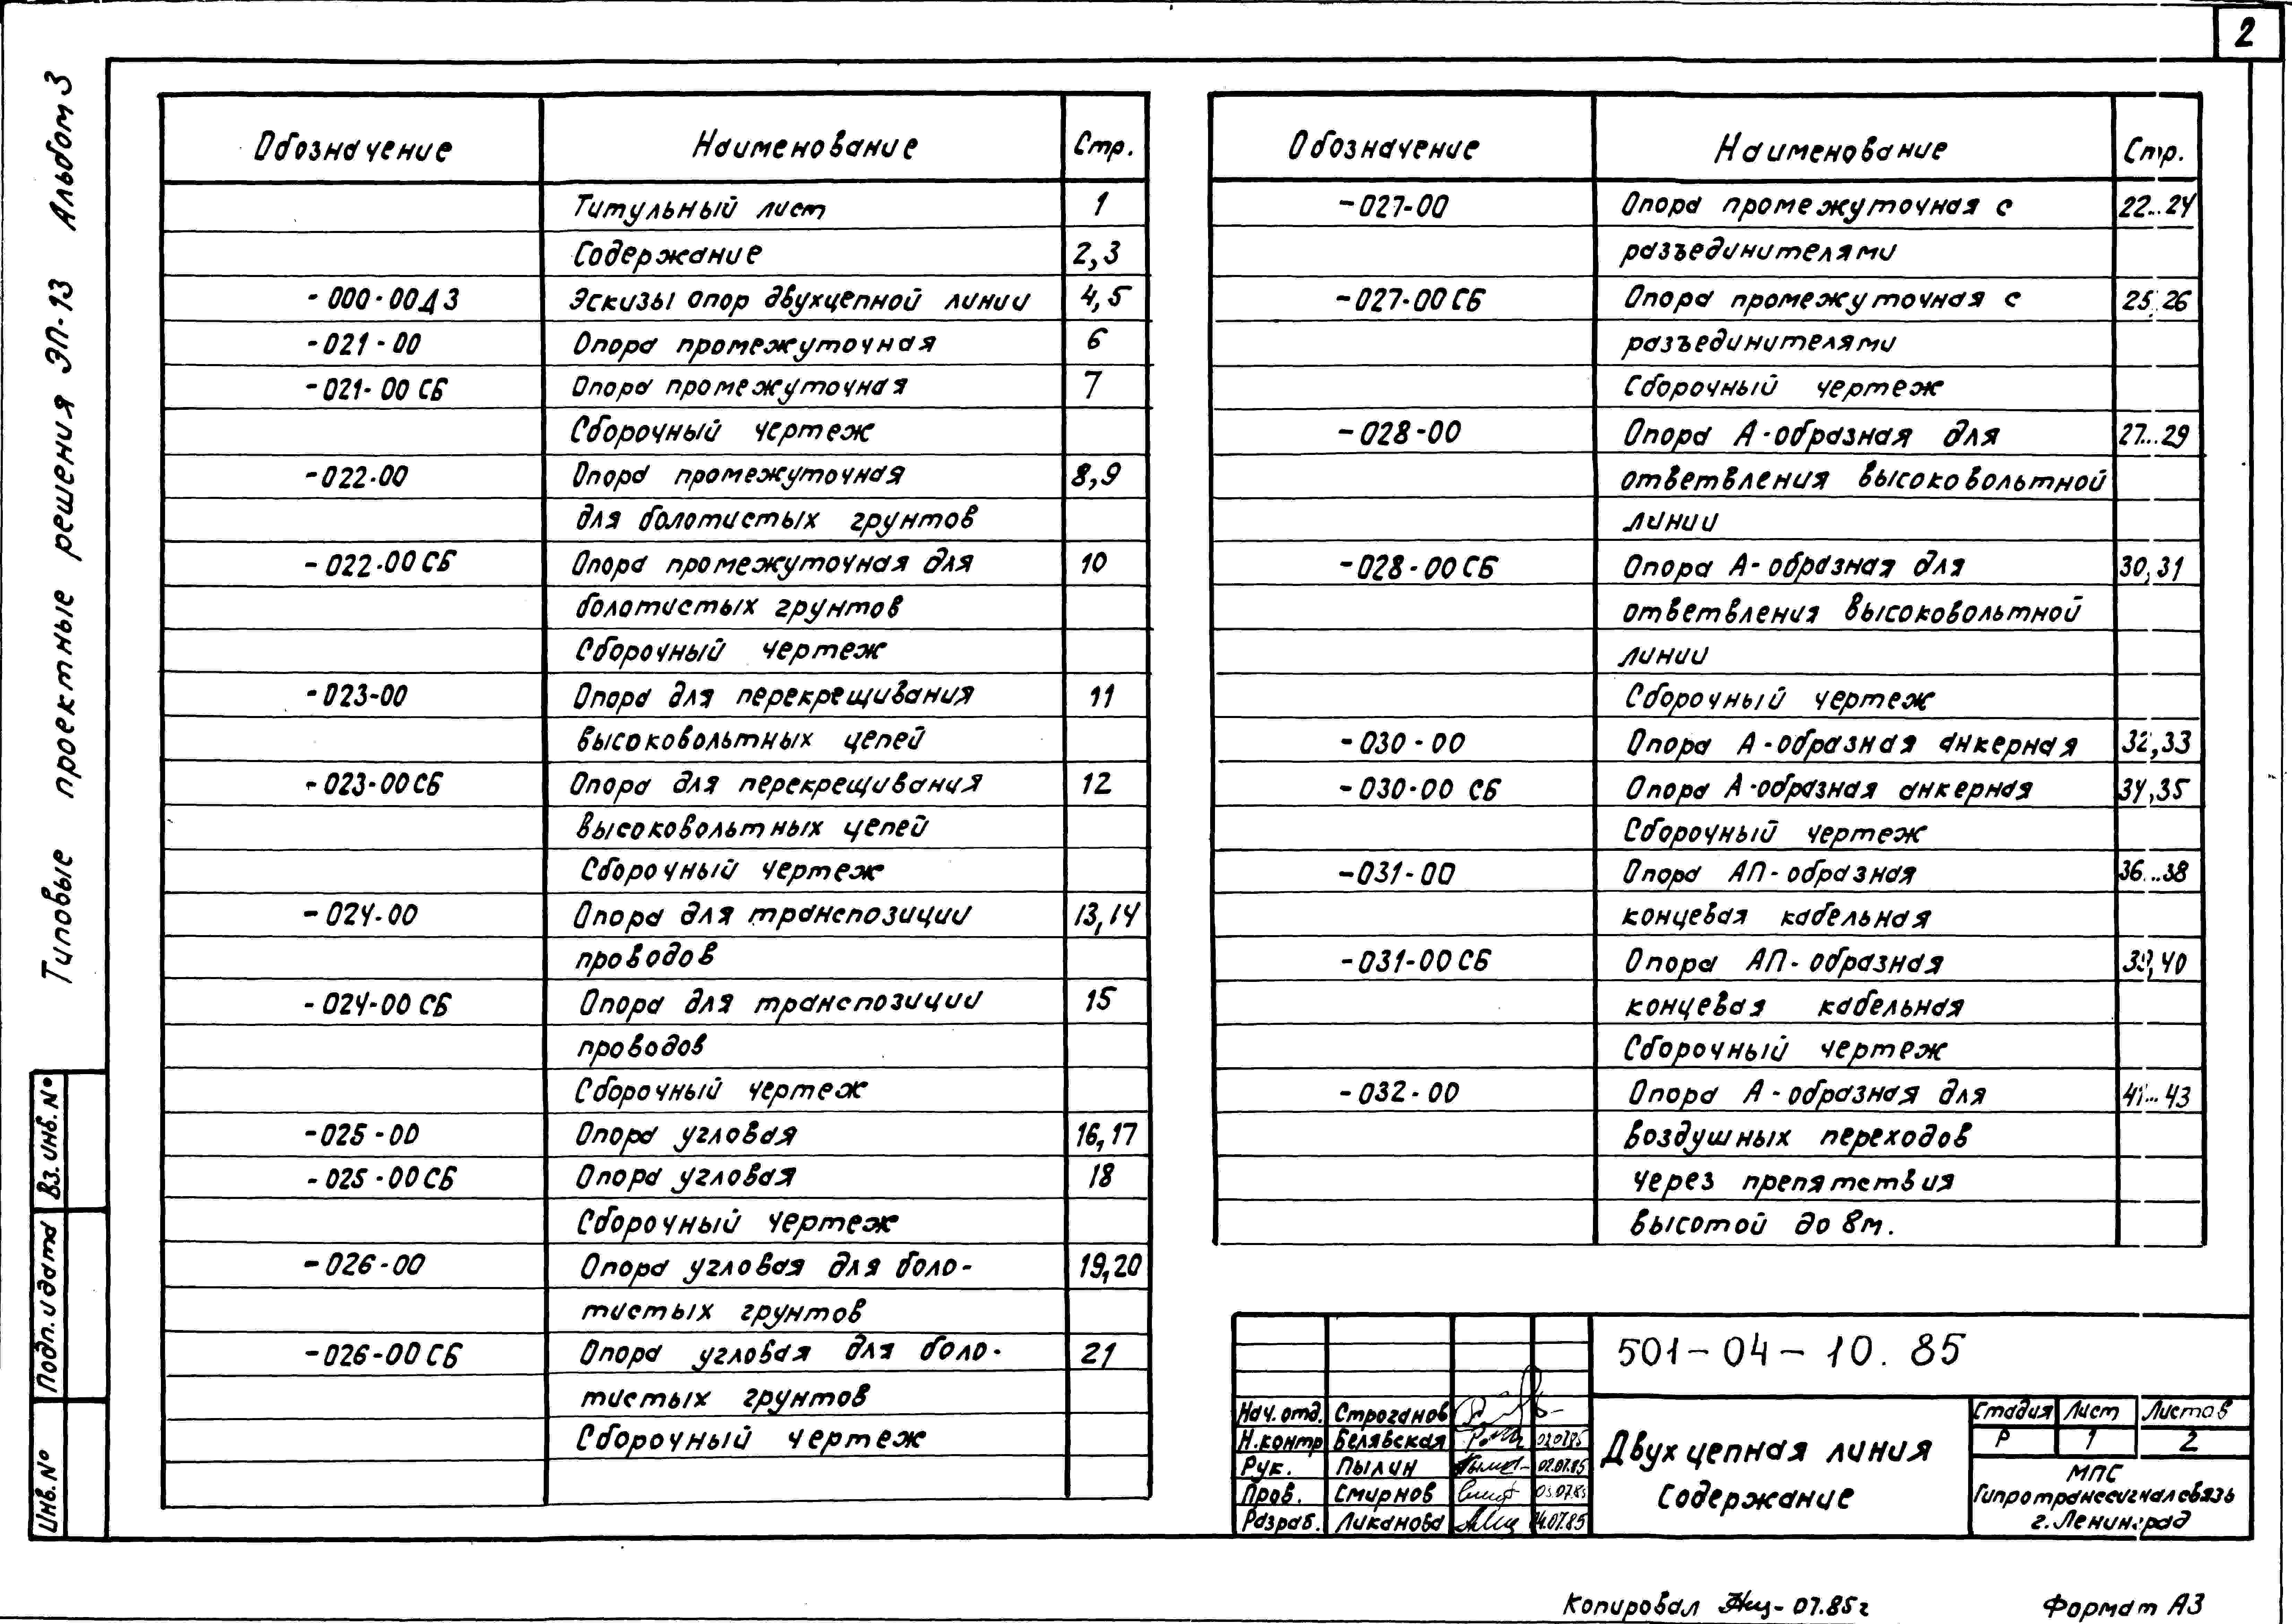 2
Типовые проектные решения ЭП-13 Альбом 3
Обозначение Наименование Стр.
Титульный лист 1
Содержание 2,3
-000-00Д3 Эскизы опор двухцепной линии 4,5
-021-00 Опора промежуточная 6
-021-00 СБ Опора промежуточная 7
Сборочный чертеж
-022-00 Опора промежуточная 8,9
для болотистых грунтов
-022-00 СБ Опора промежуточная для 10
болотистых грунтов
Сборочный чертеж
-023-00 Опора для перекрещивания 11
высоковольтных цепей
-023-00 СБ Опора для перекрещивания 12
высоковольтных цепей
Сборочный чертеж
-024-00 Опора для транспозиции 13,14
проводов
-024-00 СБ Опора для транспозиции 15
проводов
Сборочный чертеж
-025-00 Опора угловая 16,17
-025-00 СБ Опора угловая 18
Сборочный чертеж
-026-00 Опора угловая для боло- 19,20
тистых грунтов
-026-00 СБ Опора угловая для боло- 21
тистых грунтов
Сборочный чертеж
Обозначение Наименование Стр.
-027-00 Опора промежуточная с 22...24
разъединителями
-027-00 СБ Опора промежуточная с 25,26
разъединителями
Сборочный чертеж
-028-00 Опора А-образная для 27...29
ответвления высоковольтной
линии
-028-00 СБ Опора А-образная для 30,31
ответвления высоковольтной
линии
Сборочный чертеж
-030-00 Опора А-образная анкерная 32,33
-030-00 СБ Опора А-образная анкерная 34,35
Сборочный чертеж
-031-00 Опора АП-образная 36...38
концевая кабельная
-031-00 СБ Опора АП-образная 39,40
концевая кабельная
Сборочный чертеж
-032-00 Опора А-образная для 41...43
воздушных переходов
через препятствия
высотой до 8м.
Инв. № Подп. и дата Вз. инв. №
501-04-10.85
Нач. отд. Строганов
Н.контр Белявская 02.07.85
Рук. Пылин 02.07.85
Пров. Смирнов 03.07.85
Разраб. Ликанова 04.07.85
Двухцепная линия
Содержание
Стадия Лист Листов
Р 1 2
МПС
Гипротранссигналсвязь
г. Ленинград
Копировал 07.85г Формат А3